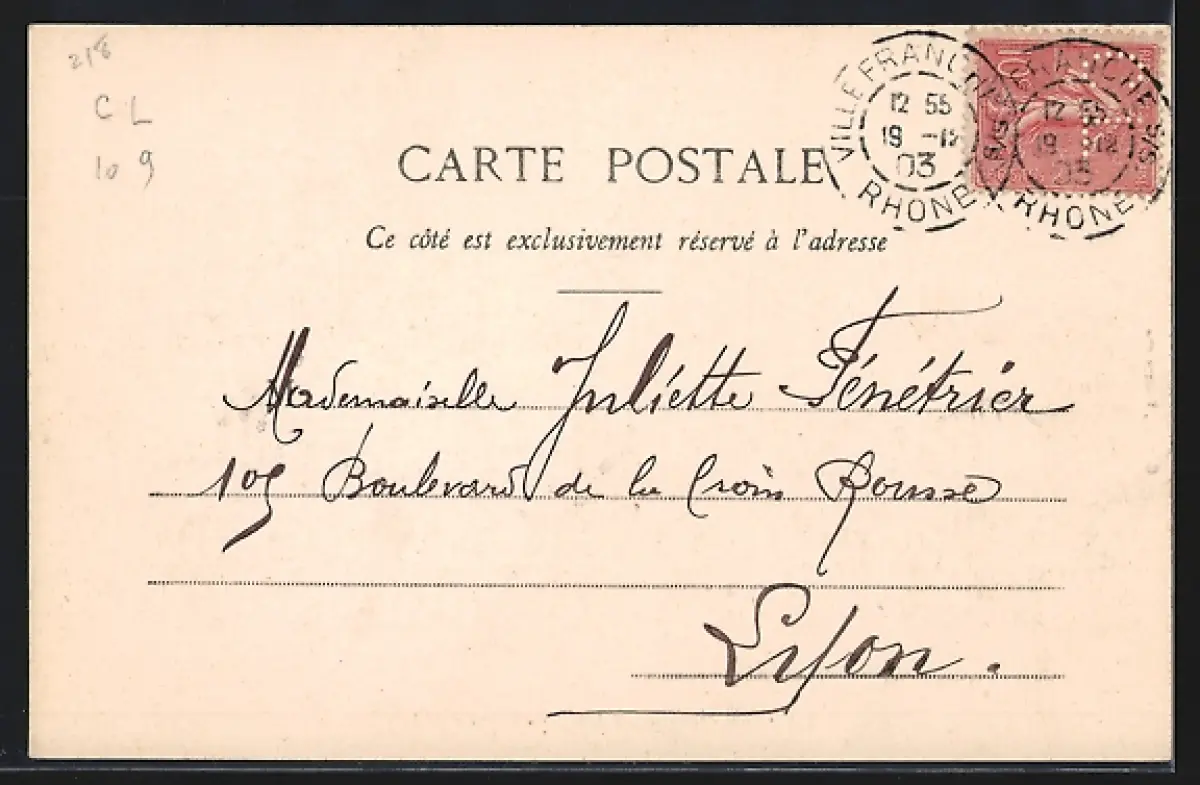 218
CL
109
CARTE POSTALE
Ce côté est exclusivement réservé à l'adresse
VILLEFRANCHE S/S
12 55
19 -12
03
RHONE
VILLEFRANCHE S/S
12 55
19 -12
03
RHONE
10c
Mademoiselle Juliette Fénétrier
105 Boulevard de la Croix Rousse
Lyon.